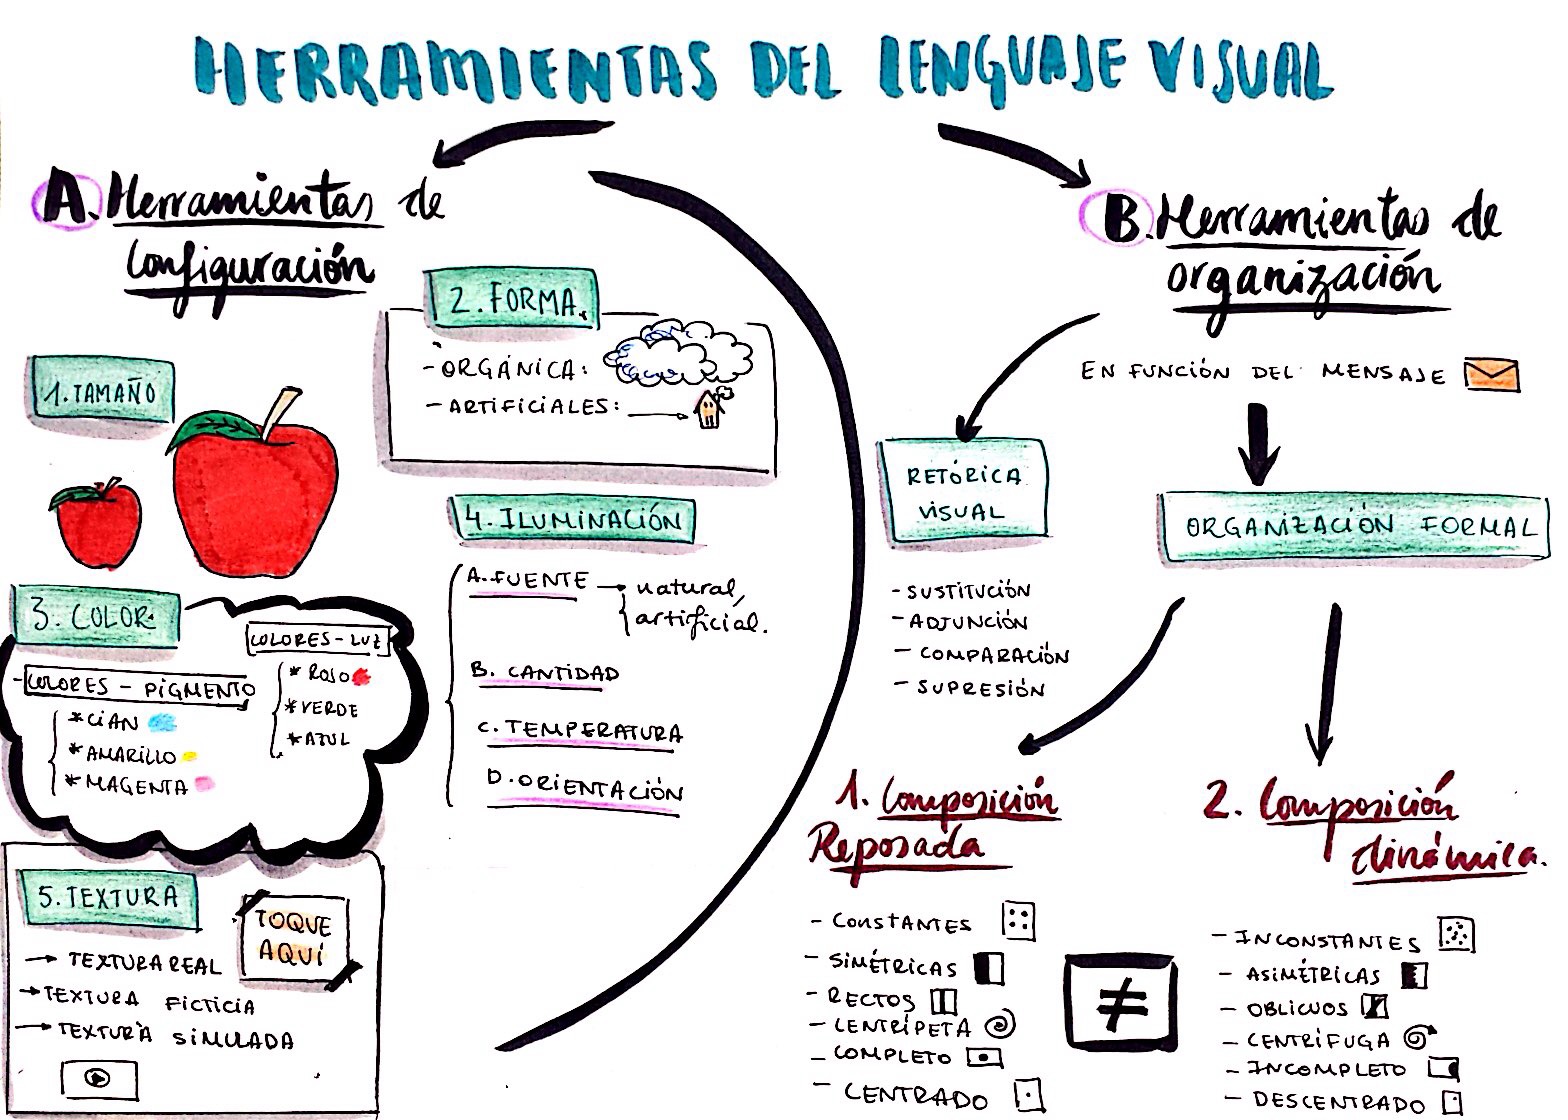 HERRAMIENTAS DEL LENGUAJE VISUAL
A. Herramientas de
configuración
1. TAMAÑO
2. FORMA.
- ORGÁNICA:
- ARTIFICIALES:
3. COLOR.
- COLORES - PIGMENTO
* CIAN
* AMARILLO
* MAGENTA
COLORES - LUZ
* ROJO
* VERDE
* AZUL
4. ILUMINACIÓN
A. FUENTE → natural,
artificial.
B. CANTIDAD
C. TEMPERATURA
D. ORIENTACIÓN
5. TEXTURA
TOQUE
AQUÍ
→ TEXTURA REAL
→ TEXTURA FICTICIA
→ TEXTURA SIMULADA
B. Herramientas de
organización
EN FUNCIÓN DEL MENSAJE
RETÓRICA
VISUAL
- SUSTITUCIÓN
- ADJUNCIÓN
- COMPARACIÓN
- SUPRESIÓN
ORGANIZACIÓN FORMAL
1. Composición
Reposada
- CONSTANTES
- SIMÉTRICAS
- RECTOS
- CENTRÍPETA
- COMPLETO
- CENTRADO
≠
2. Composición
dinámica.
- INCONSTANTES
- ASIMÉTRICAS
- OBLICUOS
- CENTRÍFUGA
- INCOMPLETO
- DESCENTRADO